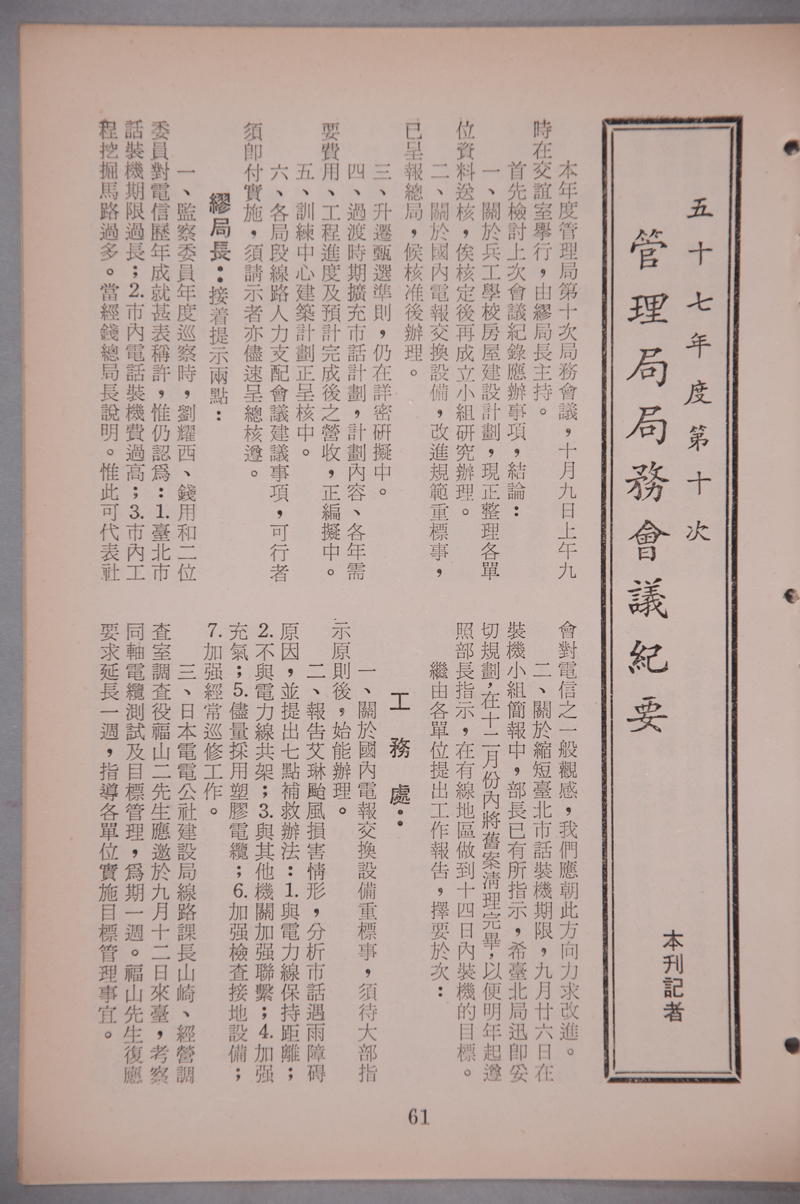 五十七年度第十次
管理局局務會議紀要
本刊記者
本年度管理局第十次局務會議，十月九日上午九
時在交誼室舉行，由繆局長主持。
首先檢討上次會議紀錄應辦事項，結論：
一、關於兵工學校房屋建設計劃，現正整理各單
位資料送核，俟核定後再成立小組硏究辦理。
二、關於國內電報交換設備，改進規範重標事，
已呈報總局，候核准後辦理。
三、升遷甄選準則，仍在詳密硏擬中。
四、過渡時期擴充市話計劃，計劃內容、各年需
要費用、工程進度及預計完成後之營收，正編擬中。
五、訓練中心建築計劃正呈核中。
六、各局段線路人力支配會議建議事項，可行者
須卽付實施，須請示者亦儘速呈總核遵。
繆局長：接着提示兩點：
一、監察委員年度巡察時，劉耀西、錢用和二位
委員對電信歷年成就甚表稱許，惟仍認爲：1.臺北市
話裝機期限過長；2.市內電話裝機費過高；3.市內工
程挖掘馬路過多。當經錢總局長說明。惟此可代表社
會對電信之一般觀感，我們應朝此方向力求改進。
二、關於縮短臺北市話裝機期限，九月廿六日在
裝機小組簡報中，部長已有所指示，希臺北局迅卽妥
切規劃，在十二月份內將舊案淸理完畢，以便明年起遵
照部長指示，在有線地區做到十四日內裝機的目標。
繼由各單位提出工作報告，擇要於次：
工務處：
一、關於國內電報交換設備重標事，須待大部指
示原則後，始能辦理。
二、報告艾琳颱風損害情形，分析市話遇雨障碍
原因，並提出七點補救辦法：1.與電力線保持距離；
2.不與電力線共架；3.與其他機關加强聯繫；4.加强
充氣；5.儘量採用塑膠電纜；6.加强檢查接地設備；
7.加强經常巡修工作。
三、日本電電公社建設局線路課長山崎、經營調
査室調査役福山二先生應邀於九月十二日來臺，考察
同軸電纜測試及目標管理，爲期一週。福山先生復應
要求延長一週，指導各單位實施目標管理事宜。
61